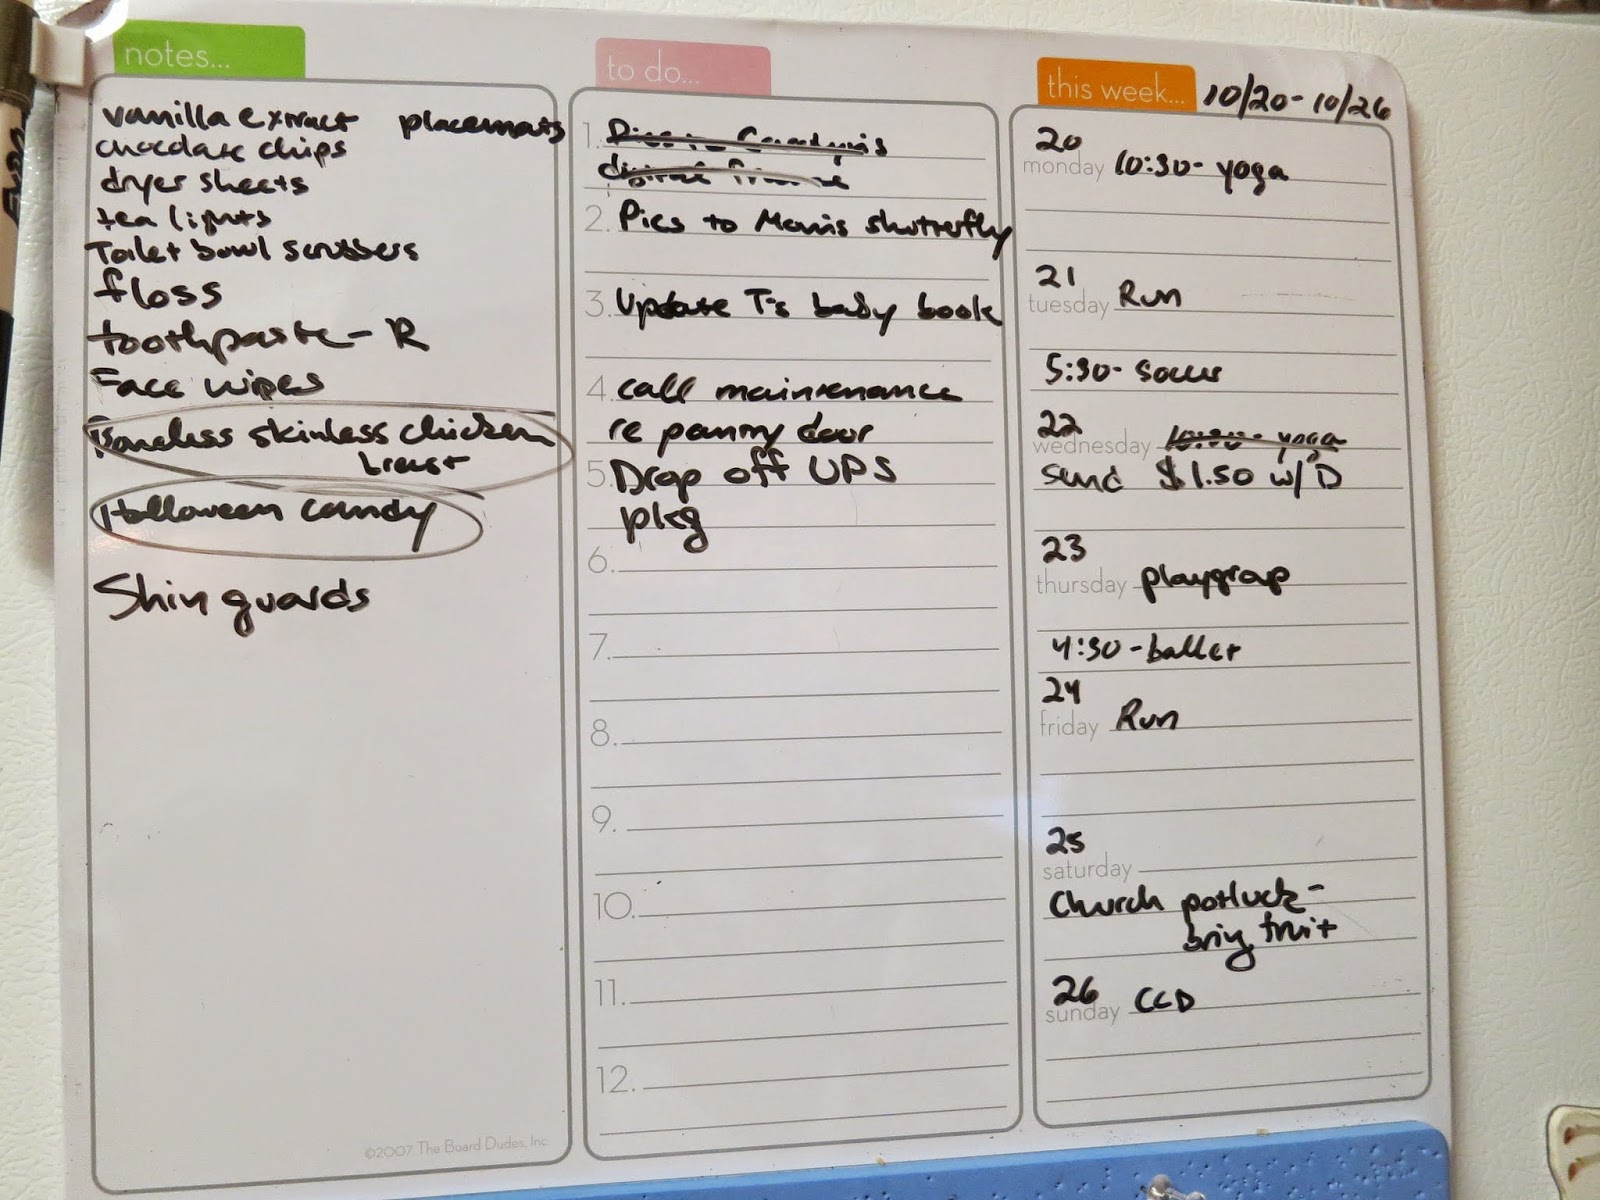 notes...
vanilla extract placemats
chocolate chips
dryer sheets
tea lights
Toilet bowl scrubbers
floss
toothpaste - R
Face wipes
Boneless skinless chicken
breast
Halloween candy
Shin guards
©2007 The Board Dudes, Inc.
to do...
1. Pics to Grandma's
digital frame
2. Pics to Mom's shutterfly
3. Update T's baby book
4. call maintenance
re pantry door
5. Drop off UPS
pkg
6.
7.
8.
9.
10.
11.
12.
this week... 10/20 - 10/26
20
monday 10:30 - yoga
21
tuesday Run
5:30 - soccer
22
wednesday 10:30 - yoga
send $1.50 w/ D
23
thursday playgroup
4:30 - ballet
24
friday Run
25
saturday
Church potluck -
bring fruit
26
sunday CCD